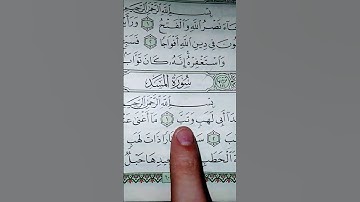 بِسْمِ اللَّهِ الرَّحْمَٰنِ الرَّحِيمِ
جَاءَ نَصْرُ اللَّهِ وَالْفَتْحُ ١ وَرَأَيْ
فِي دِينِ اللَّهِ أَفْوَاجًا ٢ فَسَبِّ
وَاسْتَغْفِرْهُ إِنَّهُ كَانَ تَوَّابً
سُورَةُ الْمَسَدِ
بِسْمِ اللَّهِ الرَّحْمَٰنِ الرَّحِيمِ
أَبِي لَهَبٍ وَتَبَّ ١ مَا أَغْنَىٰ عَنْ
ذَاتَ لَهَبٍ
الْحَطَبِ
جِيدِهَا حَبْلٌ